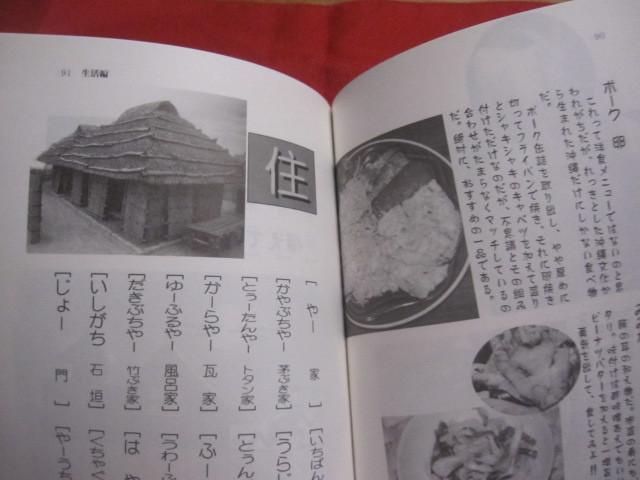 90
ポーク卵
これって洋食メニューではないのと思
われがちだが、れっきとした沖縄文化か
ら生まれた沖縄だけにしかない食べ物
だ。
ポーク缶詰を取り出し、やや厚めに
切ってフライパンで焼き、それに卵焼き
とシャキシャキのキャベツを加えて盛り
付けただけなのだが、不思議とその組み
合わせがたまらなくマッチしているの
だ。絶対に、おすすめの一品である。
ピーナツバターを加えると一増
91 生活編
住
[やー 家]
[かやぶちやー 茅ぶき家]
[とぅーたんやー トタン家]
[かーらやー 瓦家]
[ゆーふるやー 風呂家]
[だきぶちやー 竹ぶき家]
[いしがち 石垣]
[じょー 門]
[いちばん
[うらじ
[とぅん
[ふー
[うわーふ
[はや
[くちゃぐ
[やーうち